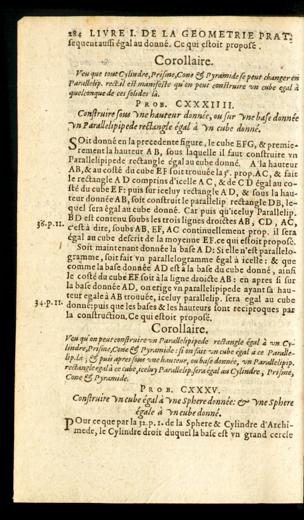 284 LIVRE I. DE LA GEOMETRIE PRAT.
sequent aussi égal au donné. Ce qui estoit proposé.
Corollaire.
Veu que tout Cylindre, Prisme, Cone & Pyramide se peut changer en
Parallelip. rectāl est manifeste qu'on peut construire vn cube egal à
quelconque de ces solides là.
PROB. CXXXIIII.
Construire sous vne hauteur donnée, ou sur vne base donnée
vn Parallelipipede rectangle égal à vn cube donné.
SOit donné en la precedente figure, le cube EFG, & premie-
rement la hauteur AB, sous laquelle il faut construire vn
Parallelipipede rectangle égal au cube donné. A la hauteur
AB, & au costé du cube EF soit trouuée la 3e. prop. AC, & fait
le rectangle AD comprins d'icelle AC, & de CD égal au co-
sté du cube EF: puis sur iceluy rectangle AD, & sous la hau-
teur donnée AB, soit construit le parallelip rectangle DB, le-
quel sera égal au cube donné. Car puis qu'iceluy Parallelip.
BD est contenu soubs les trois lignes droictes AB, CD, AC,
38.p.11. c'est à dire, soubs AB, EF, AC continuellement prop. il sera
égal au cube descrit de la moyenne EF. ce qui estoit proposé.
Soit maintenant donnée la base AD: Si elle n'est parallelo-
gramme, soit fait vn parallelogramme égal à icelle: & que
comme la base donnée AD est à la base du cube donné, ainsi
le costé du cube EF soit à la ligne droicte AB: en apres si sur
la base donnée AD, on erige vn parallelipipede ayant sa hau-
teur egale à AB trouuée, iceluy parallelip. sera egal au cube
34.p.11. donné: puis que les bases & les hauteurs sont reciproques par
la construction. Ce qui estoit proposé.
Corollaire.
Veu qu'on peut construire vn Parallelipipede rectangle égal à vn Cy-
lindre, Prisme, Cone & Pyramide: si on fait vn cube égal à ce Paralle-
lip. là; & puis apres sous vne hauteur, ou base donnée, vn Parallelipip.
rectangle egal à ce cube, iceluy Parallelip. sera égal au Cylindre, Prisme,
Cone & Pyramide.
PROB. CXXXV.
Construire vn cube égal à vne Sphere donnée: & vne Sphere
égale à vn cube donné.
POur ce que par la 32.p.1. de la Sphere & Cylindre d'Archi-
mede, le Cylindre droit duquel la base est vn grand cercle